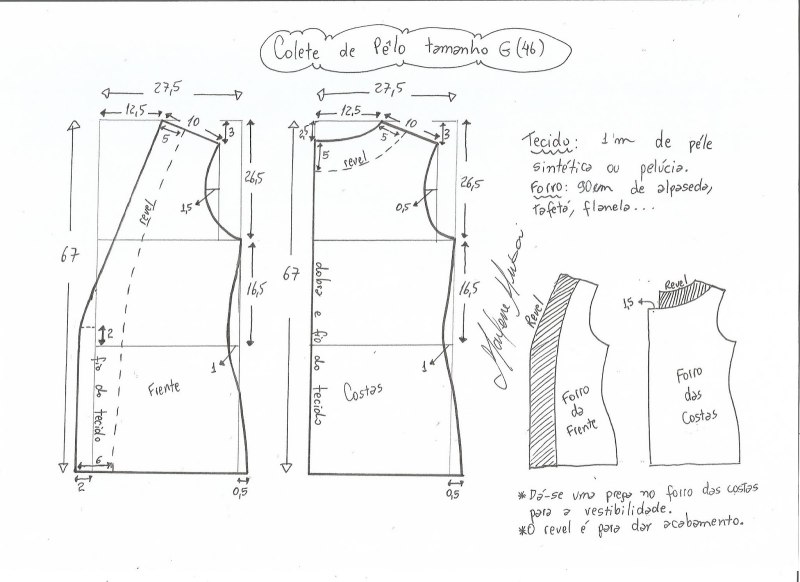 Colete de Pêlo tamanho G (46)
27,5
12,5
10
3
5
revel
26,5
1,5
67
16,5
2
1
fio do tecido
Frente
6
2
0,5
27,5
12,5
10
2,5
3
5
5
revel
26,5
0,5
67
dobra e fio do tecido
16,5
1
Costas
0,5
Tecido: 1m de péle
sintética ou pelúcia.
Forro: 90cm de
tafetá, flanela...
Revel
Forro
da
Frente
Revel
1,5
Forro
das
Costas
*Dá-se uma prega no forro das costas
para a vestibilidade.
*O revel é para dar acabamento.